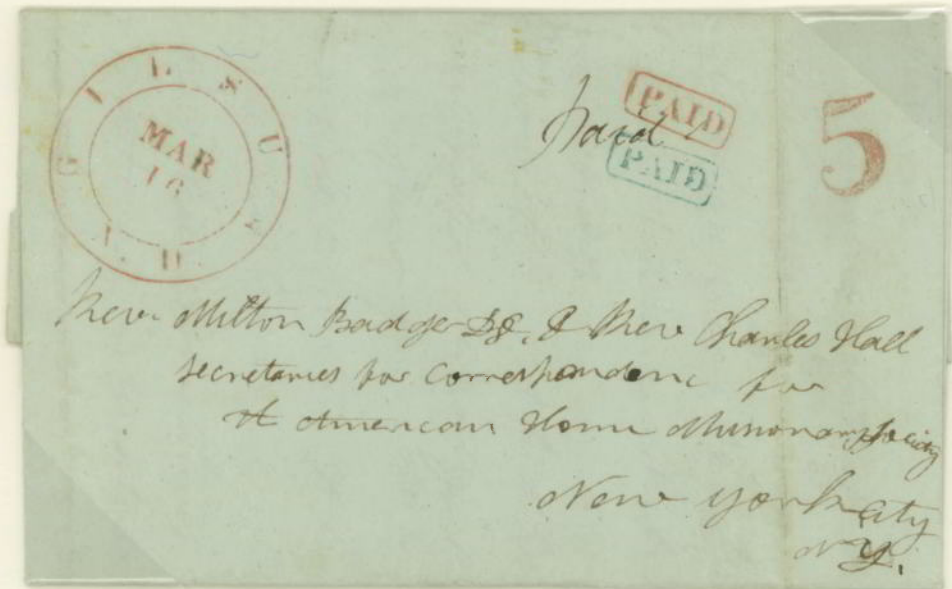 GILSUM N.H.
MAR
16
Paid
PAID
PAID
5
Rev. Milton Badger DD. & Rev Charles Hall
Secretaries for Correspondenc for
A American Home Missionary Society
New York City
N Y.